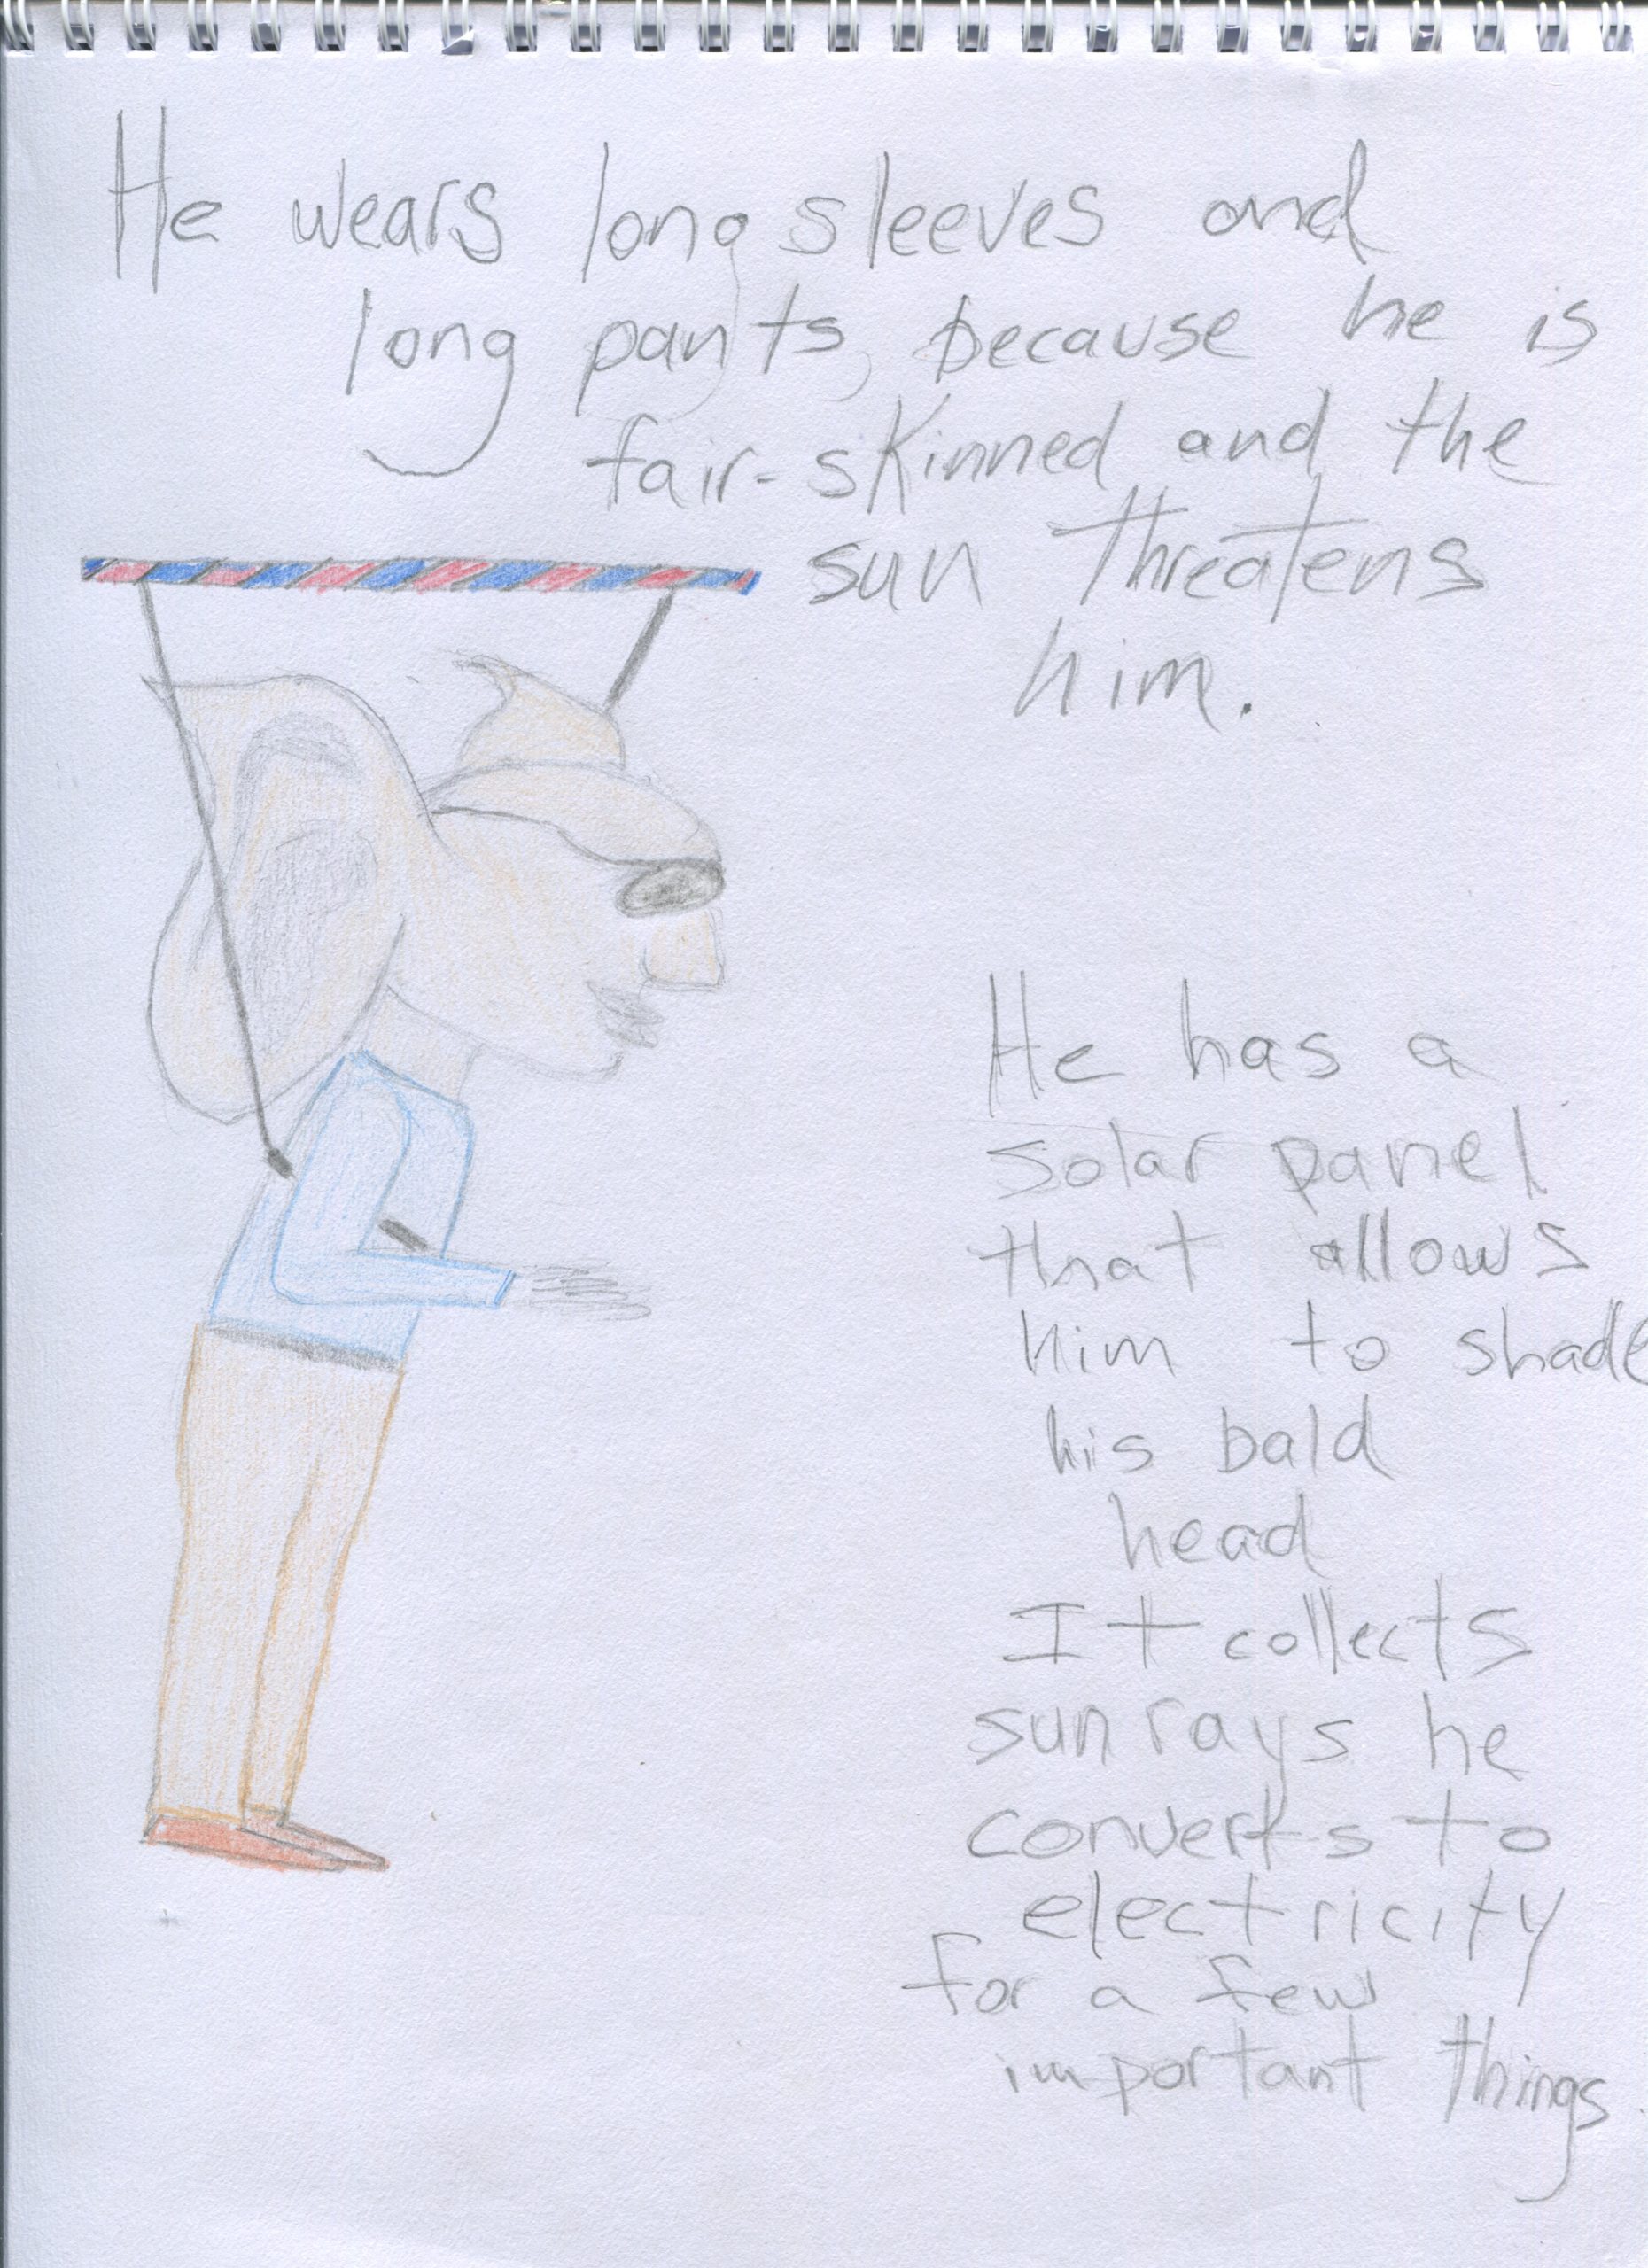 He wears long sleeves and
long pants, because he is
fair-skinned and the
sun threatens
him.
He has a
solar panel
that allows
him to shade
his bald
head
It collects
sun rays he
converts to
electricity
for a few
important things.